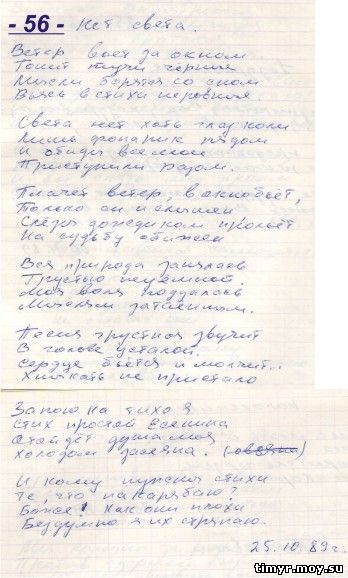 - 56 -
Нет света.
Ветер воет за окном
Гонит тучи чёрные
Мысли борятся со сном
Вьясь в стихи неровные.
Света нет хоть глаз коли
Лишь фонарик рядом
И обиды все мои
Приступили разом.
Плачет ветер, в окно бьёт,
Только он и слышен
Слёзы дождиком прольёт
На судьбу обижен
Вся природа занялась
Грустью неуёмной.
Моя воля поддалась
Мыслям затаённым.
Песня грустная звучит
В голове усталой.
Сердце бьётся и молчит..
Хныкать не пристало
Запою ка тихо я
Стих простой Есенина
Отойдёт душа моя
Холодом засеяна.
И кому нужны стихи
Те, что накарябаю?
Боже! Как они плохи
Бездумно я их стряпаю.
25.10.89г.
timyr.moy.su